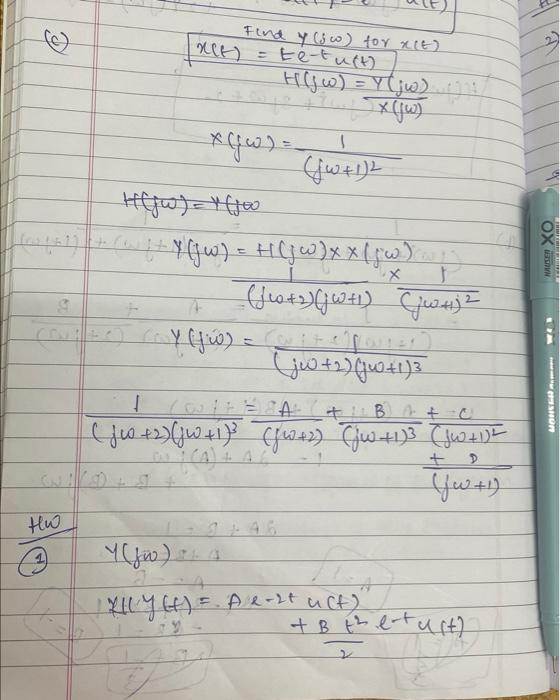 u(t)
(c) Find Y(jω) for x(t)
x(t) = te-t u(t)
H(jω) = Y(jω) / X(jω)
X(jω) = 1 / (jω+1)2
H(jω) = Y(jω
Y(jω) = H(jω) x X(jω)
1 / (jω+2)(jω+1) x 1 / (jω+1)2
Y(jω) = 1 / (jω+2)(jω+1)3
1 / (jω+2)(jω+1)3 = A / (jω+2) + B / (jω+1)3 + C / (jω+1)2
+ D / (jω+1)
HW
1 Y(jω)
y(t) = A e-2t u(t)
+ B t2 / 2 e-t u(t)
2)
HAUSER XO